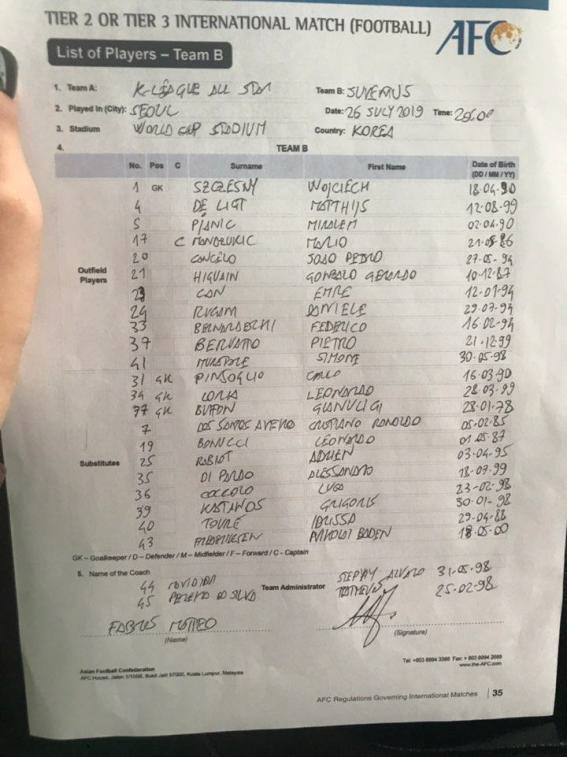 TIER 2 OR TIER 3 INTERNATIONAL MATCH (FOOTBALL)
AFC
List of Players – Team B
1. Team A: K-LEAGUE ALL STAR Team B: JUVENTUS
2. Played in (City): SEOUL Date: 26 JULY 2019 Time: 20:00
3. Stadium WORLD CUP STADIUM Country: KOREA
4. TEAM B
No. Pos C Surname First Name Date of Birth (DD / MM / YY)
Outfield Players
1 GK SZCZESNY WOJCIECH 18.04.90
4 DE LIGT MATTHIJS 12.08.99
5 PJANIC MIRALEM 02.04.90
17 C MANDZUKIC MARIO 21.05.86
20 CANCELO JOAO PEDRO 27.05.94
21 HIGUAIN GONZALO GERARDO 10.12.87
23 CAN EMRE 12.01.94
24 RUGANI DANIELE 29.07.94
33 BERNARDESCHI FEDERICO 16.02.94
37 BERUATTO PIETRO 21.12.99
41 MURATORE SIMONE 30.05.98
Substitutes
31 GK PINSOGLIO CARLO 16.03.90
34 GK LORIA LEONARDO 28.03.99
77 GK BUFFON GIANLUIGI 28.01.78
7 DOS SANTOS AVEIRO CRISTIANO RONALDO 05.02.85
19 BONUCCI LEONARDO 01.05.87
25 RABIOT ADRIEN 03.04.95
35 DI PARDO ALESSANDRO 18.07.99
36 COCCOLO LUCA 23-02-98
39 KASTANOS GRIGORIS 30.01.98
40 TOURE IDRISSA 29.04.98
43 NIKOLAI BADEN 18.05.00
GK – Goalkeeper / D – Defender / M – Midfielder / F – Forward / C - Captain
5. Name of the Coach Team Administrator
44 STEPHY 31.05.98
45 PEREIRA DA SILVA MATHEUS 25.02.98
FABRIS MATTEO
(Name) (Signature)
Asian Football Confederation
AFC House, Jalan 1/155B, Bukit Jalil 57000, Kuala Lumpur, Malaysia
Tel: +603 8994 3388 Fax: + 603 8994 2689
www.the-AFC.com
AFC Regulations Governing International Matches | 35